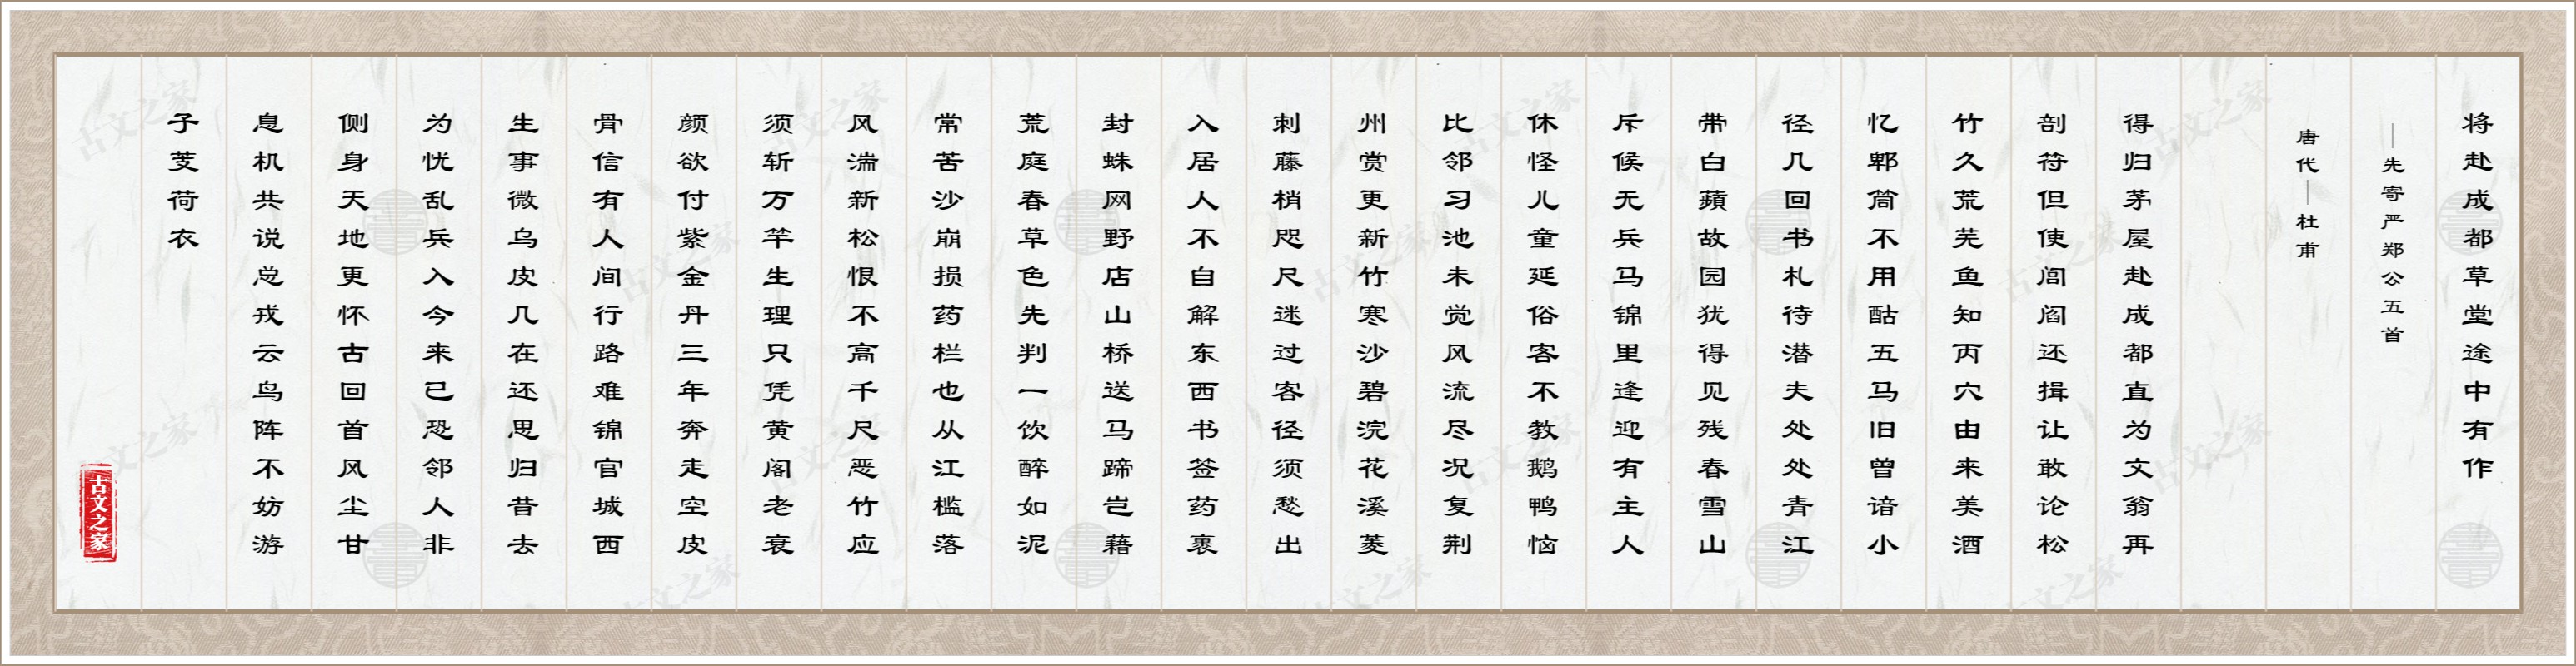 将赴成都草堂途中有作
—先寄严郑公五首
唐代—杜甫
得归茅屋赴成都直为文翁再
剖符但使闾阎还揖让敢论松
竹久荒芜鱼知丙穴由来美酒
忆郫筒不用酤五马旧曾谙小
径几回书札待潜夫处处青江
带白蘋故园犹得见残春雪山
斥候无兵马锦里逢迎有主人
休怪儿童延俗客不教鹅鸭恼
比邻习池未觉风流尽况复荆
州赏更新竹寒沙碧浣花溪菱
刺藤梢咫尺迷过客径须愁出
入居人不自解东西书签药裹
封蛛网野店山桥送马蹄岂藉
荒庭春草色先判一饮醉如泥
常苦沙崩损药栏也从江槛落
风湍新松恨不高千尺恶竹应
须斩万竿生理只凭黄阁老衰
颜欲付紫金丹三年奔走空皮
骨信有人间行路难锦官城西
生事微乌皮几在还思归昔去
为忧乱兵入今来已恐邻人非
侧身天地更怀古回首风尘甘
息机共说总戎云鸟阵不妨游
子芰荷衣
古文之家